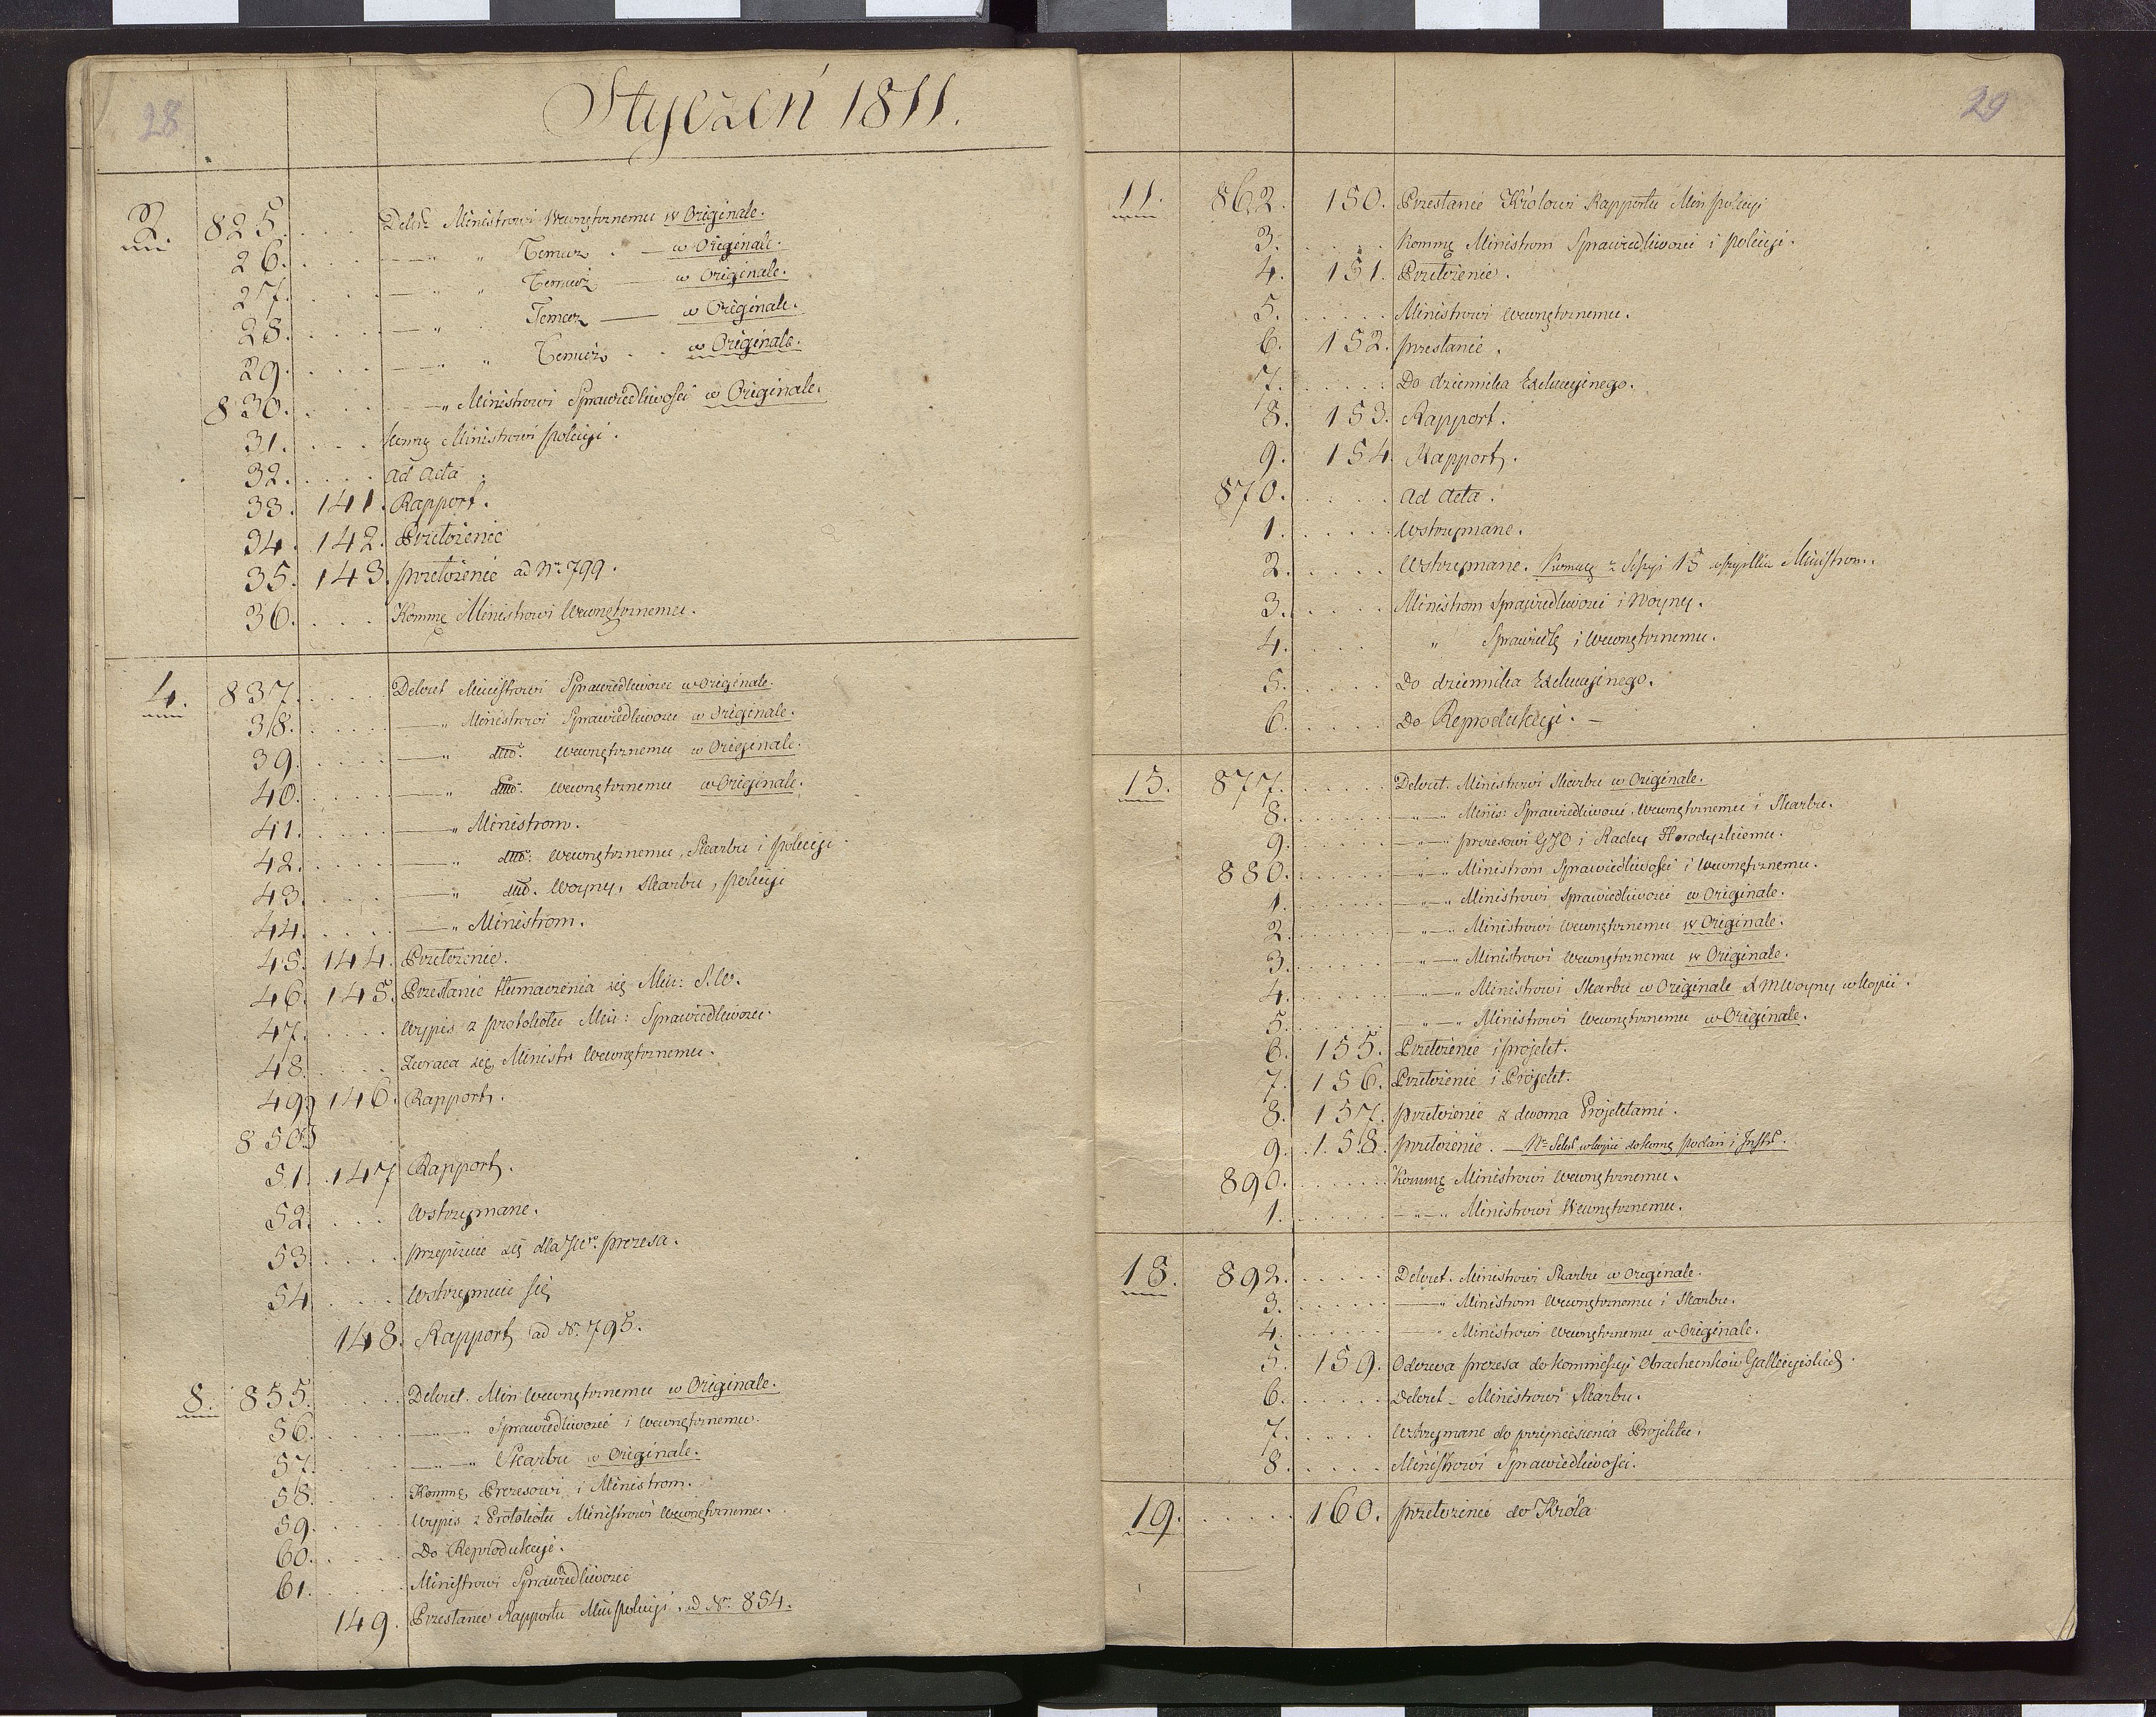 28
Styczeń 1811.
2. 825. . . . Dekrt Ministrowi Wewnętrznemu w Originale.
26. . . . — " " Temuz . — w Originale.
27. . . . — " " Temuż — w Originale.
28. . . . — " Temuz — w Originale.
29. . . . — " " Temuż . . w Originale.
830. . . . — " Ministrowi Sprawiedliwości w Originale.
31. . . . Kommę Ministrowi policyi.
32. . . . ad acta.
33. 141. Rapport.
34. 142. Przełożenie
35. 143. przełożenie ad Nr 799.
36. . . . Kommę Ministrowi Wewnętrznemu.
4. 837. . . . Dekret Ministrowi Sprawiedliwości w Originale.
38. . . . — " Ministrowi Sprawiedliwości w Originale.
39. . . . — " dito. Wewnętrznemu w Originale.
40. . . . — " dito. Wewnętrznemu w Originale.
41. . . . — " Ministrom.
42. . . . — " dito. Wewnętrznemu, Skarbu i policyi
43. . . . — " dito. Woyny, Skarbu, policyi
44. . . . — " Ministrom.
45. 144. Przełożenie.
46. 145. Przesłanie tłumaczenia się Min: S. W.
47. . . . Wypis z protokołu Min: Sprawiedliwości.
48. . . . Zwraca się Ministr Wewnętrznemu.
49. 146. Rapport.
850.
51. 147 Rapport.
52. . . . Wstrzymane.
53. . . . przepisuie się dla prezesa.
54. . . . Wstrzymuie się
148. Rapport ad Nr. 795.
8. 855. . . . Dekret. Min Wewnętrznemu w Originale.
56. . . . — " — " Sprawiedliwości i Wewnętrznemu.
57. . . . — " — " Skarbu w Originale.
58. . . . Kommę Prezesowi i Ministrom.
59. . . . Wypis z Protokołu Ministrowi Wewnętrznemu.
60. . . . Do Reprodukcyi.
61. . . . Ministrowi Sprawiedliwości
149. Przesłanie Rapportu Min policyi, ad Nr. 854.
29
11. 862. 150. Przesłanie Królowi Rapportu Min policyi
3. . . . Kommę Ministrom Sprawiedliwości i policyi.
4. 151. Przełożenie.
5. . . . Ministrowi Wewnętrznemu.
6. 152. przesłanie.
7. . . . Do dziennika Exekucyinego.
8. 153. Rapport.
9. 154. Rapport.
870. . . . ad acta.
1. . . . Wstrzymane.
2. . . . Wstrzymane. z Sessyi 15 Ministrom.
3. . . . Ministrom Sprawiedliwości i Woyny.
4. . . . " Sprawiedlę i Wewnętrznemu.
5. . . . Do dziennika Exekucyinego.
6. . . . Do Reprodukcyi. —
15. 877. . . . Dekret. Ministrowi Skarbu w Originale.
8. . . . " — " Minis: Sprawiedliwości, Wewnętrznemu i Skarbu.
9. . . . " — " prezesowi i Radcy Horodyskiemu.
880. . . . " — " Ministrom Sprawiedliwości i Wewnętrznemu.
1. . . . " — " Ministrowi Sprawiedliwości w Originale.
2. . . . " — " Ministrowi Wewnętrznemu w Originale.
3. . . . " — " Ministrowi Wewnętrznemu w Originale.
4. . . . " — " Ministrowi Skarbu w Originale & M Woyny w kopii.
5. . . . " — " Ministrowi Wewnętrznemu w Originale.
6. 155. Przełożenie i projekt.
7. 156. Przełożenie i Projekt.
8. 157. przełożenie z dwoma Projektami.
9. 158. przełożenie. — w kopii do komę podań i Instr.
890. . . . Kommę Ministrowi Wewnętrznemu.
1. . . . " — " Ministrowi Wewnętrznemu.
18. 892. . . . Dekret. Ministrowi Skarbu w Originale.
3. . . . — " Ministrom Wewnętrznemu i Skarbu.
4. . . . — " Ministrowi Wewnętrznemu w Originale.
5. 159. Odezwa prezesa do kommissyi Obrachunków Gallicyiskich.
6. . . . Dekret — Ministrowi Skarbu.
7. . . . Wstrzymane do przyniesienia Projektu.
8. . . . Ministrowi Sprawiedliwości.
19. . . . 160. przełożenie do Króla